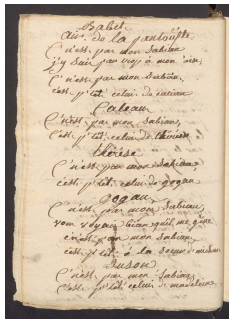 Babet
air. de la pantoufle
C'n'est pas mon sabiau
j'y sais pas trop à mon
C'n'est pas mon sabiau,
c'est p'tit celui de catiau
Cateau
C'n'est pas mon sabiau,
C'est p'tit celui de thérèse
thérèse
C'n'est pas mon sabiau
c'est p'tit celui de gogau
gogau
C'n'est pas mon sabiau,
vous voyez bian qu'il me gêne
c'n'est pas mon sabiau
c'est p'tit à la
Suson
C'n'est pas mon sabiau
c'est p'tit celui de madeleine